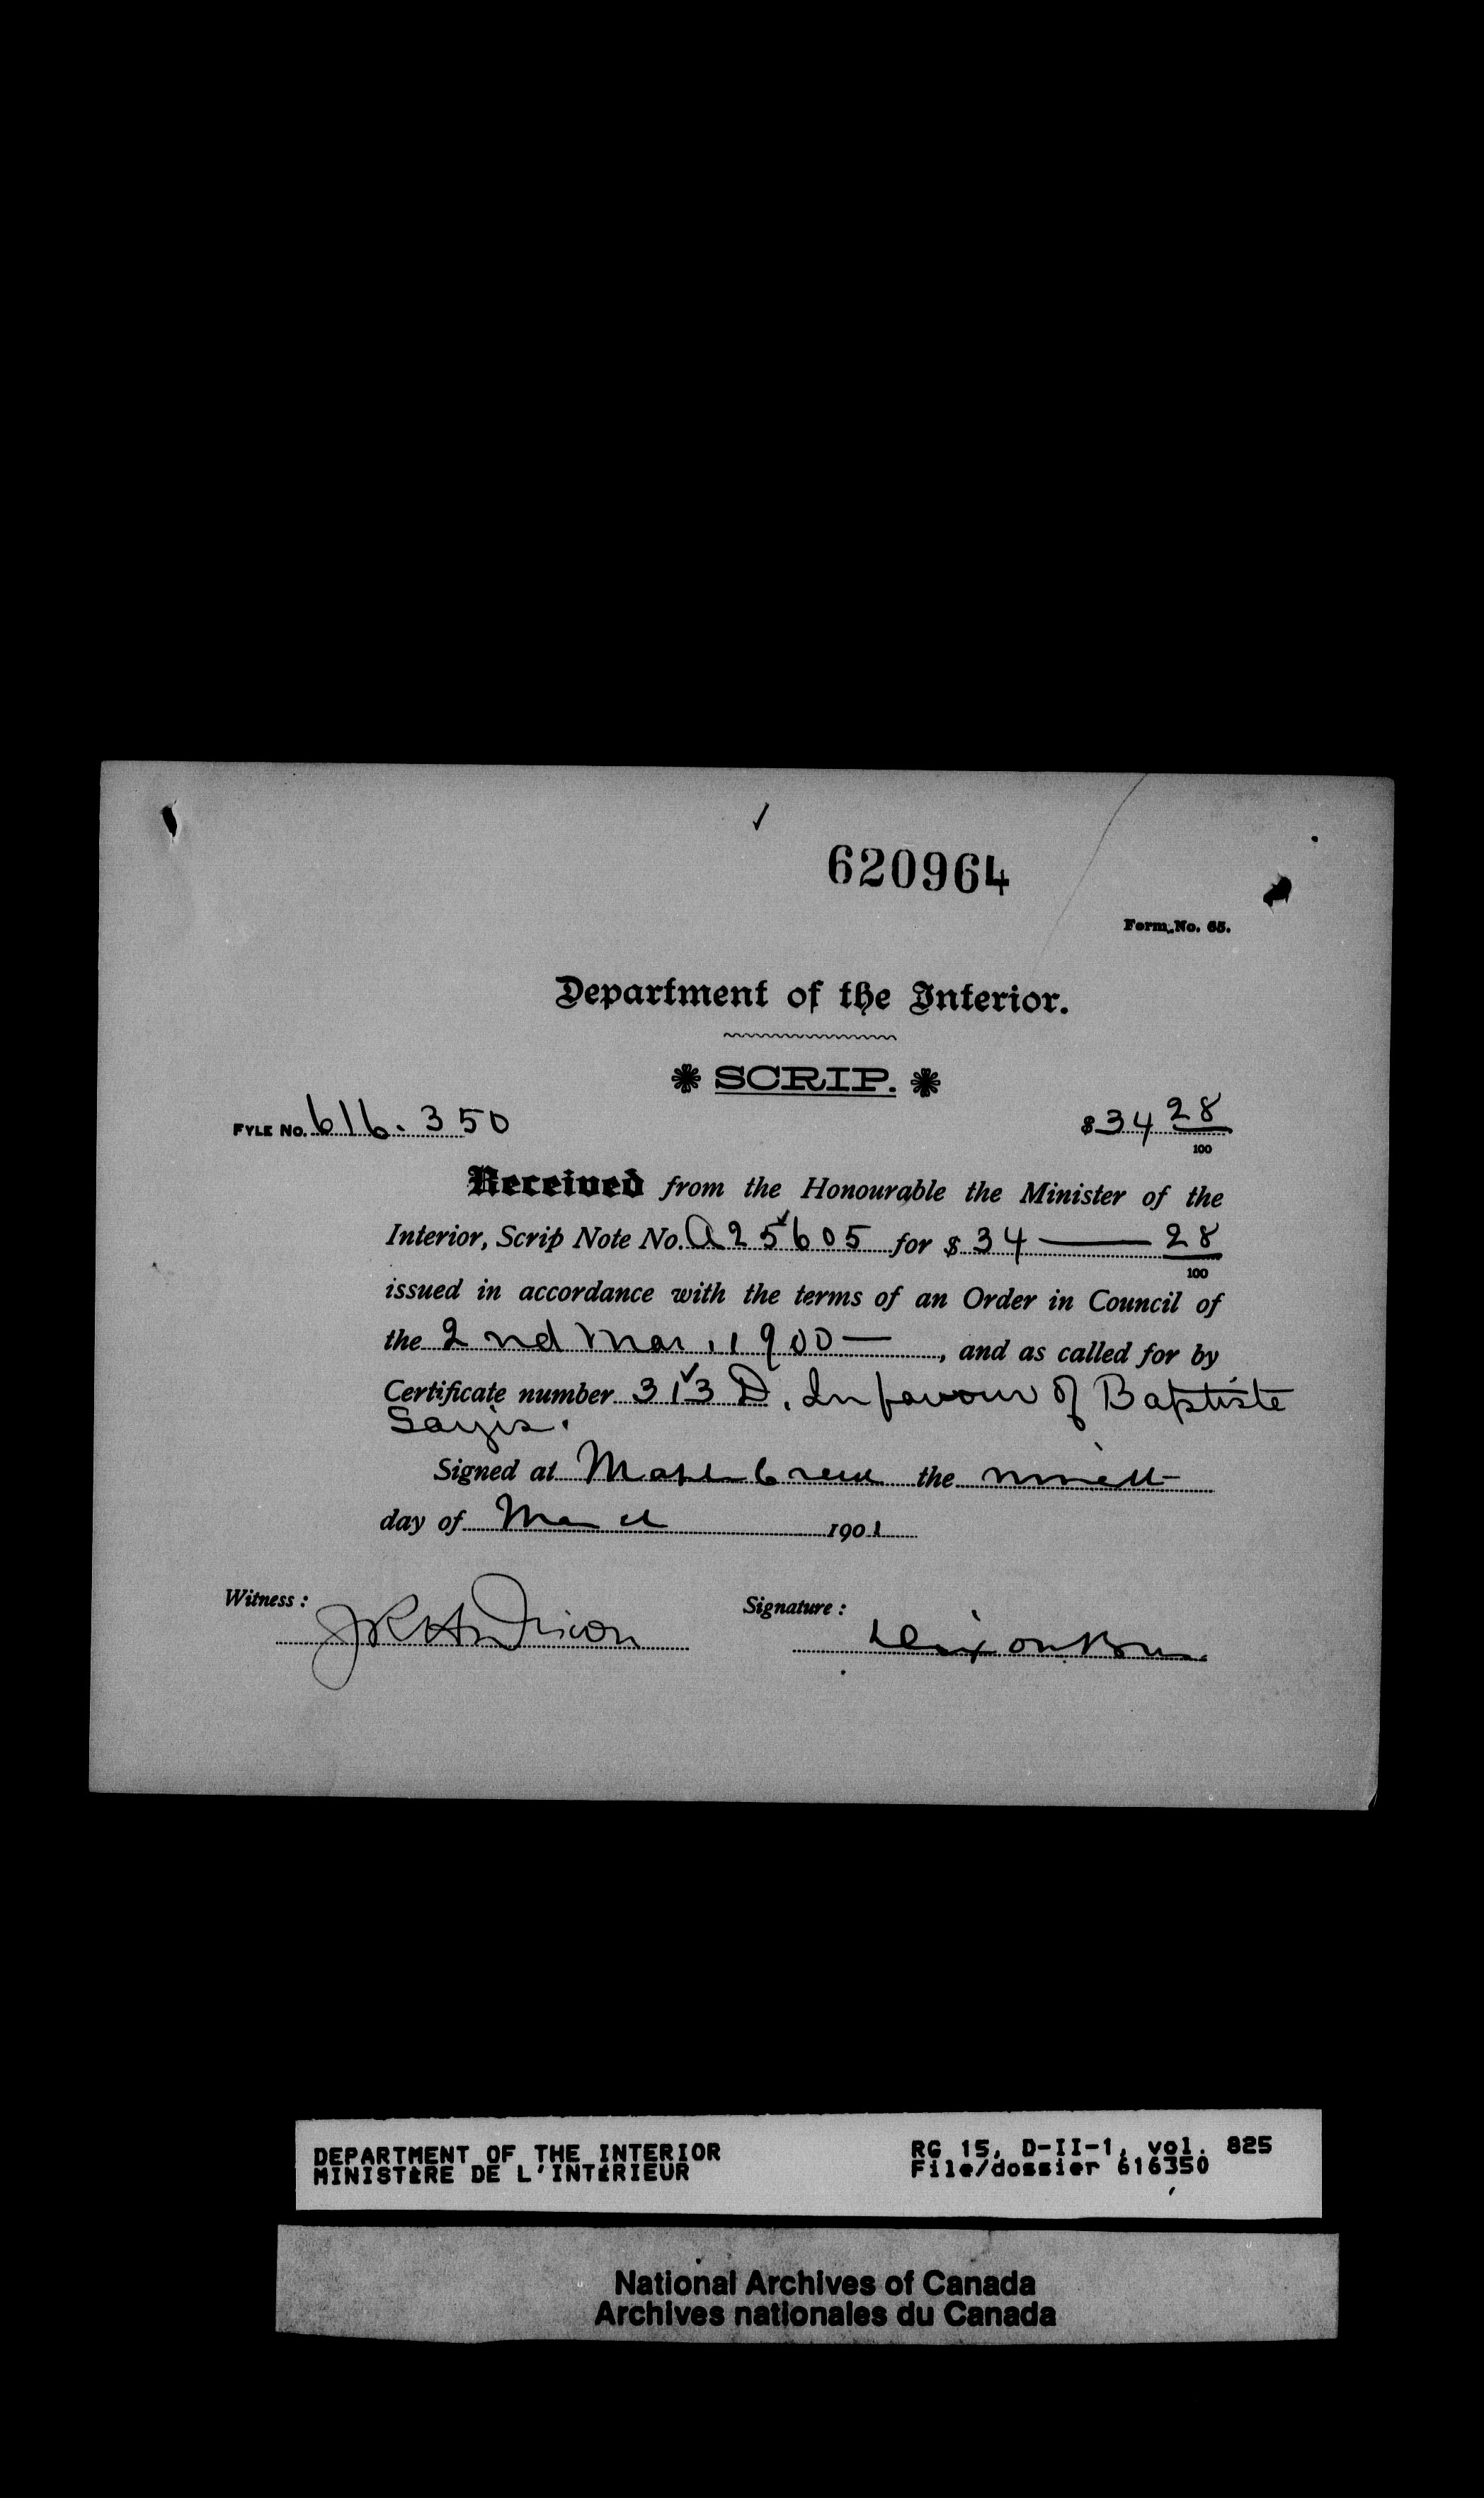 620964
Form No. 65.
Department of the Interior.
SCRIP.
FYLE No. 616.350 $34 28/100
Received from the Honourable the Minister of the
Interior, Scrip Note No. A25605 for $ 34 — 28/100
issued in accordance with the terms of an Order in Council of
the 2nd Mar. 1900 —, and as called for by
Certificate number 313 D. In favour of Baptiste
Sayis.
Signed at Maple Creek the ninth
day of March 1901
Witness: Signature:
Dixon Bros
DEPARTMENT OF THE INTERIOR RG 15, D-II-1, vol. 825
MINISTÈRE DE L'INTÉRIEUR File/dossier 616350
National Archives of Canada
Archives nationales du Canada